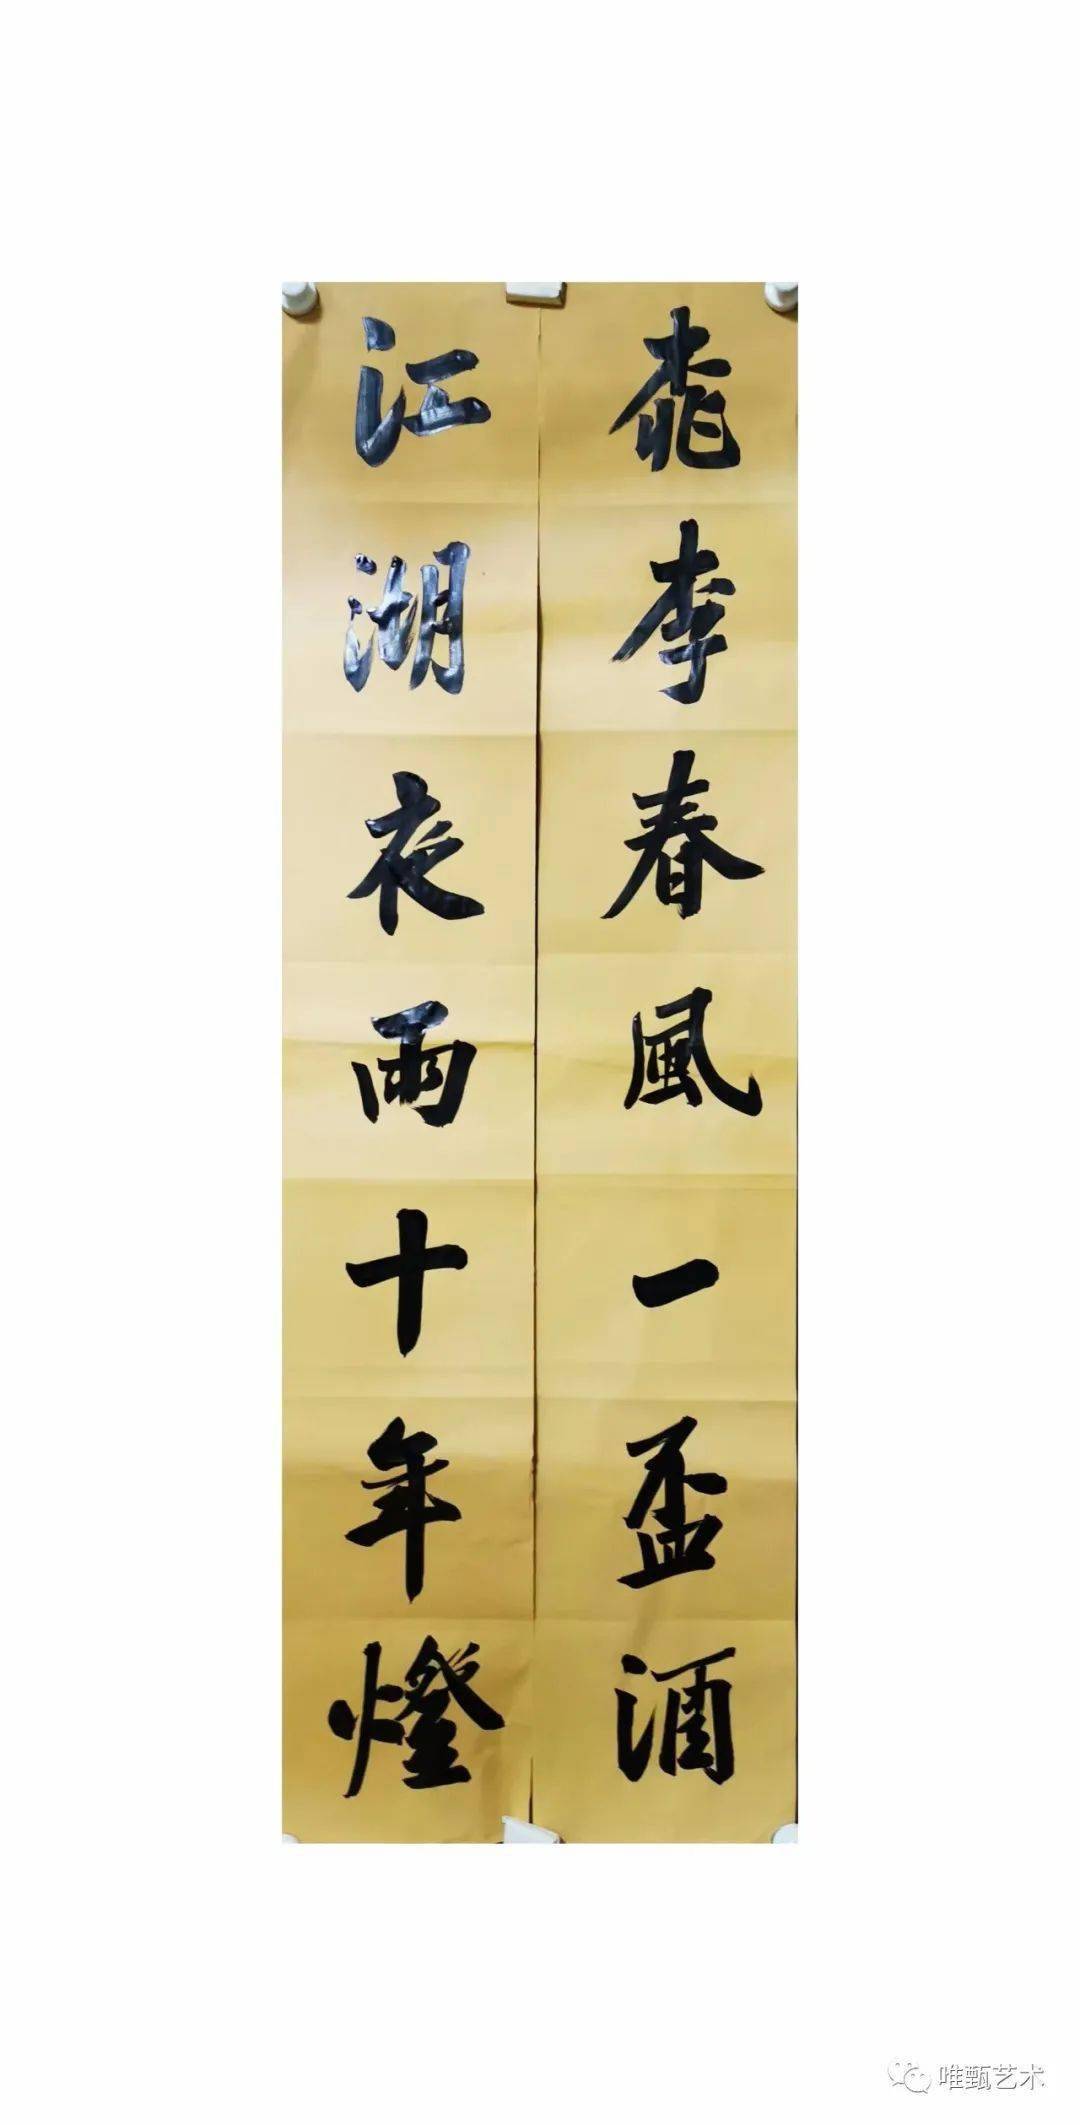 桃李春風一盃酒
江湖夜雨十年燈
唯甄艺术